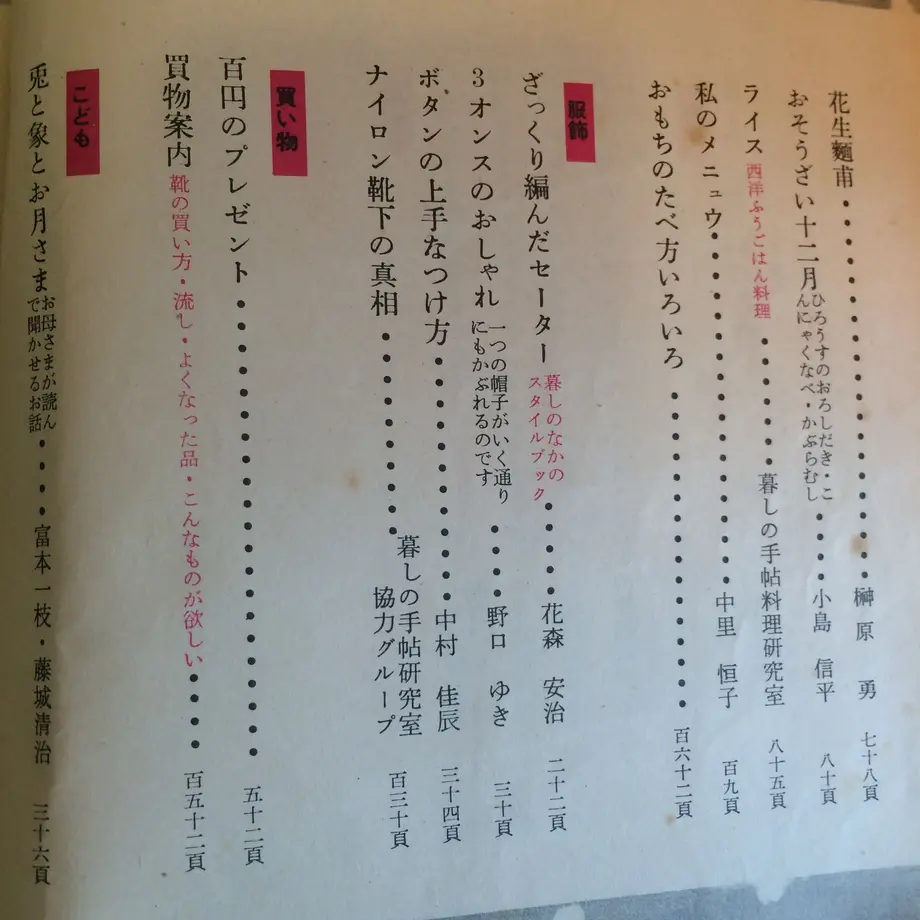 花生麵甫・・・・・・・・・・・・・・・・・・榊原 勇 七十八頁
おそうざい十二月 ひろうすのおろしだき・こんにゃくなべ・かぶらむし・・・・小島 信平 八十頁
ライス 西洋ふうごはん料理・・・・・・・暮しの手帖料理研究室 八十五頁
私のメニュウ・・・・・・・・・・・・・・・・・・中里 恒子 百九頁
おもちのたべ方いろいろ・・・・・・・・・・・・・・・・百六十二頁
服飾
ざっくり編んだセーター 暮しのなかのスタイルブック・・・・・花森 安治 二十二頁
3オンスのおしゃれ 一つの帽子がいく通りにもかぶれるのです・・・・野口 ゆき 三十頁
ボタンの上手なつけ方・・・・・・・・・・・・・中村 佳辰 三十四頁
ナイロン靴下の真相・・・・・・・・・・暮しの手帖研究室 協力グループ 百三十頁
買い物
百円のプレゼント・・・・・・・・・・・・・・・・・・・・五十二頁
買物案内 靴の買い方・流し・よくなった品・こんなものが欲しい・・・・百五十二頁
こども
兎と象とお月さま お母さまが読んで聞かせるお話・・・・富本一枝・藤城清治 三十六頁